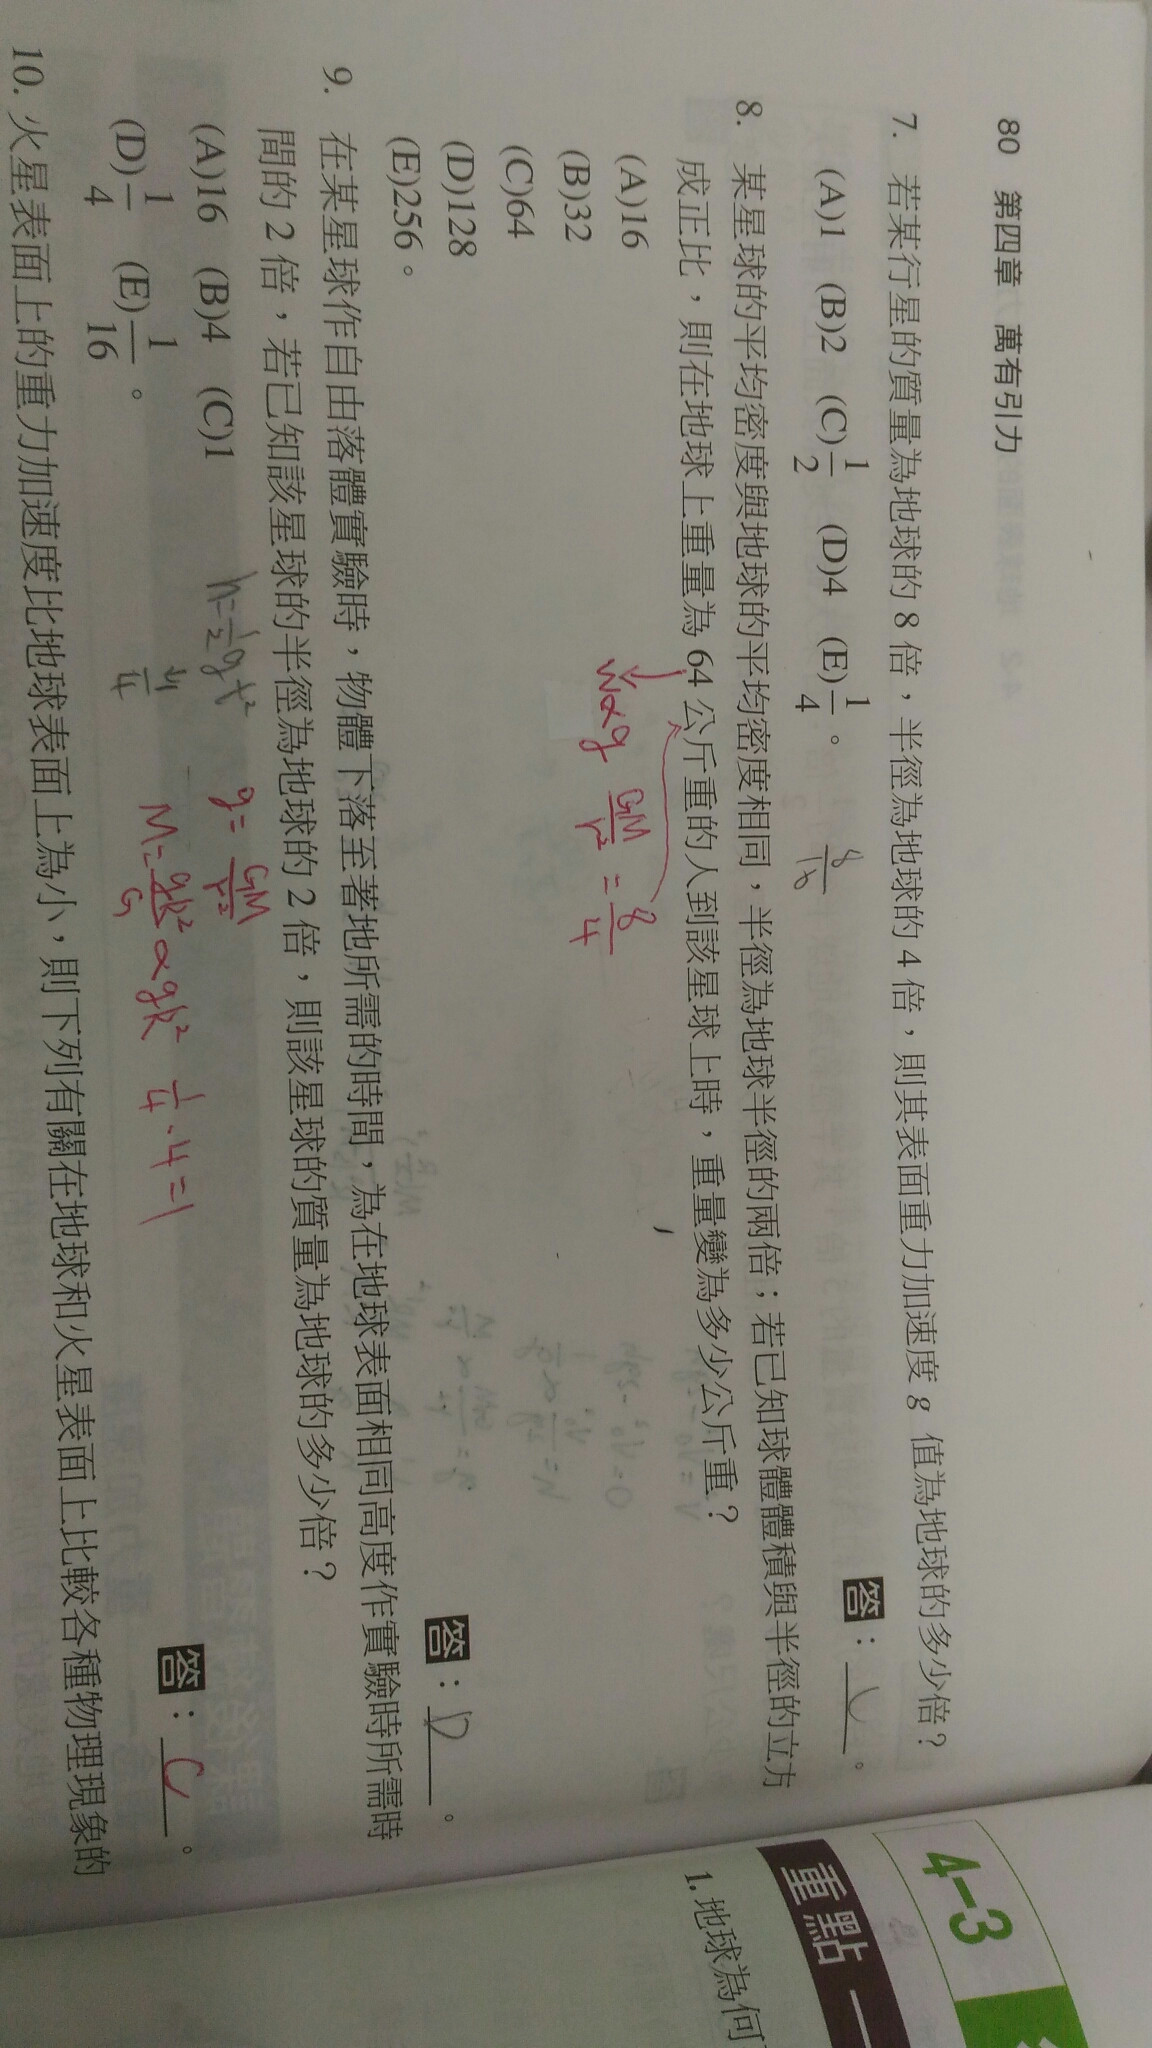 80 第四章 萬有引力
7. 若某行星的質量為地球的 8 倍，半徑為地球的 4 倍，則其表面重力加速度 g 值為地球的多少倍？
(A)1 (B)2 (C)1/2 (D)4 (E)1/4。
8/16
答：C。
8. 某星球的平均密度與地球的平均密度相同，半徑為地球半徑的兩倍；若已知球體體積與半徑的立方
成正比，則在地球上重量為 64 公斤重的人到該星球上時，重量變為多少公斤重？
(A)16
(B)32
(C)64
(D)128
(E)256。
W∝g GM/r² = 8/4
答：D。
9. 在某星球作自由落體實驗時，物體下落至著地所需的時間，為在地球表面相同高度作實驗時所需時
間的 2 倍，若已知該星球的半徑為地球的 2 倍，則該星球的質量為地球的多少倍？
(A)16 (B)4 (C)1
(D)1/4 (E)1/16。
h=1/2gt²
g=GM/r²
M=gR²/G∝gR² 1/4·4=1
答：C。
10. 火星表面上的重力加速度比地球表面上為小，則下列有關在地球和火星表面上比較各種物理現象的
4-3
重點一
1. 地球為何